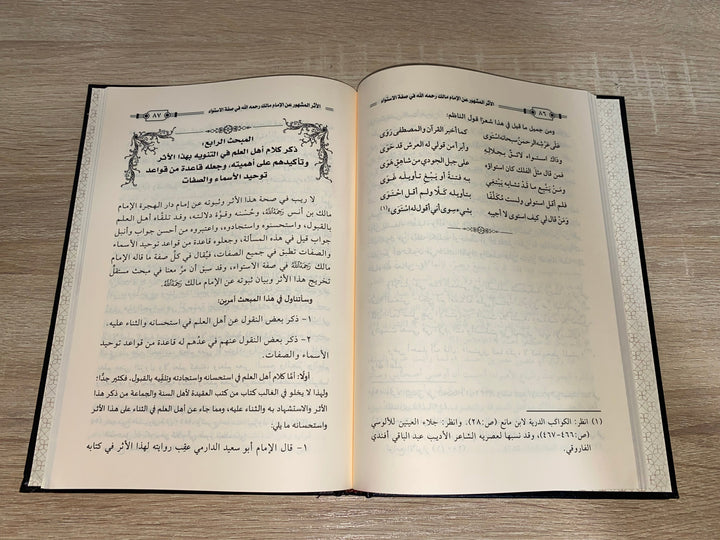 ٨٦
الأثر المشهور عن الإمام مالك رحمه الله في صفة الاستواء
ومن جميل ما قيل في هذا شعرًا قول الناظم:
على عرشه الرحمن سبحانه استوى كما أخبر القرآن والمصطفى روى
وذاك استواء لائق بجلاله وأبرأ من قولي له العرش قد حوى
فمن قال مثل الفلك كان استواؤه على جبل الجودي من شاهق هوى
ومن يتبع ما قد تشابه يبتغي به فتنة أو يبغ تأويله غوى
فلم أقل استولى ولست مكلفًا بتأويله كلا ولم أقل احتوى
ومن قال لي كيف استوى لا أجيبه بشيء سوى أني أقول له استوى(١)
(١) انظر: الكواكب الدرية لابن مانع (ص:٢٨). وانظر: جلاء العينين للألوسي
(ص:٤٦٦-٤٦٧)، وقد نسبها لعصريه الشاعر الأديب عبد الباقي أفندي
الفاروقي.
الأثر المشهور عن الإمام مالك رحمه الله في صفة الاستواء
٨٧
المبحث الرابع:
ذكر كلام أهل العلم في التنويه بهذا الأثر
وتأكيدهم على أهميته، وجعله قاعدة من قواعد
توحيد الأسماء والصفات
لا ريب في صحة هذا الأثر وثبوته عن إمام دار الهجرة الإمام
مالك بن أنس رَحِمَهُ اللَّهُ، وحُسْنه وقوَّة دلالته، وقد تلقَّاه أهل العلم
بالقبول، واستحسنوه واستجادوه، واعتبروه من أحسن جواب وأنبل
جواب قيل في هذه المسألة، وجعلوه قاعدة من قواعد توحيد الأسماء
والصفات تطبق في جميع الصفات، فيُقال في كلِّ صفة ما قاله الإمام
مالك رَحِمَهُ اللَّهُ في صفة الاستواء، وقد سبق أن مرَّ معنا في مبحث مستقلٍّ
تخريج هذا الأثر وبيان ثبوته عن الإمام مالك رَحِمَهُ اللَّهُ.
وسأتناول في هذا المبحث أمرين:
١- ذكر بعض النقول عن أهل العلم في استحسانه والثناء عليه.
٢- ذكر بعض النقول عنهم في عدِّهم له قاعدة من قواعد توحيد
الأسماء والصفات.
أولًا: أمَّا كلام أهل العلم في استحسانه واستجادته وتلقيه بالقبول، فكثير جدًّا؛
ولهذا لا يخلو في الغالب كتاب من كتب العقيدة لأهل السنة والجماعة من ذكر هذا
الأثر والاستشهاد به والثناء عليه، ومما جاء عن أهل العلم في الثناء على هذا الأثر
واستحسانه ما يلي:
١- قال الإمام أبو سعيد الدارمي عقِب روايته لهذا الأثر في كتابه